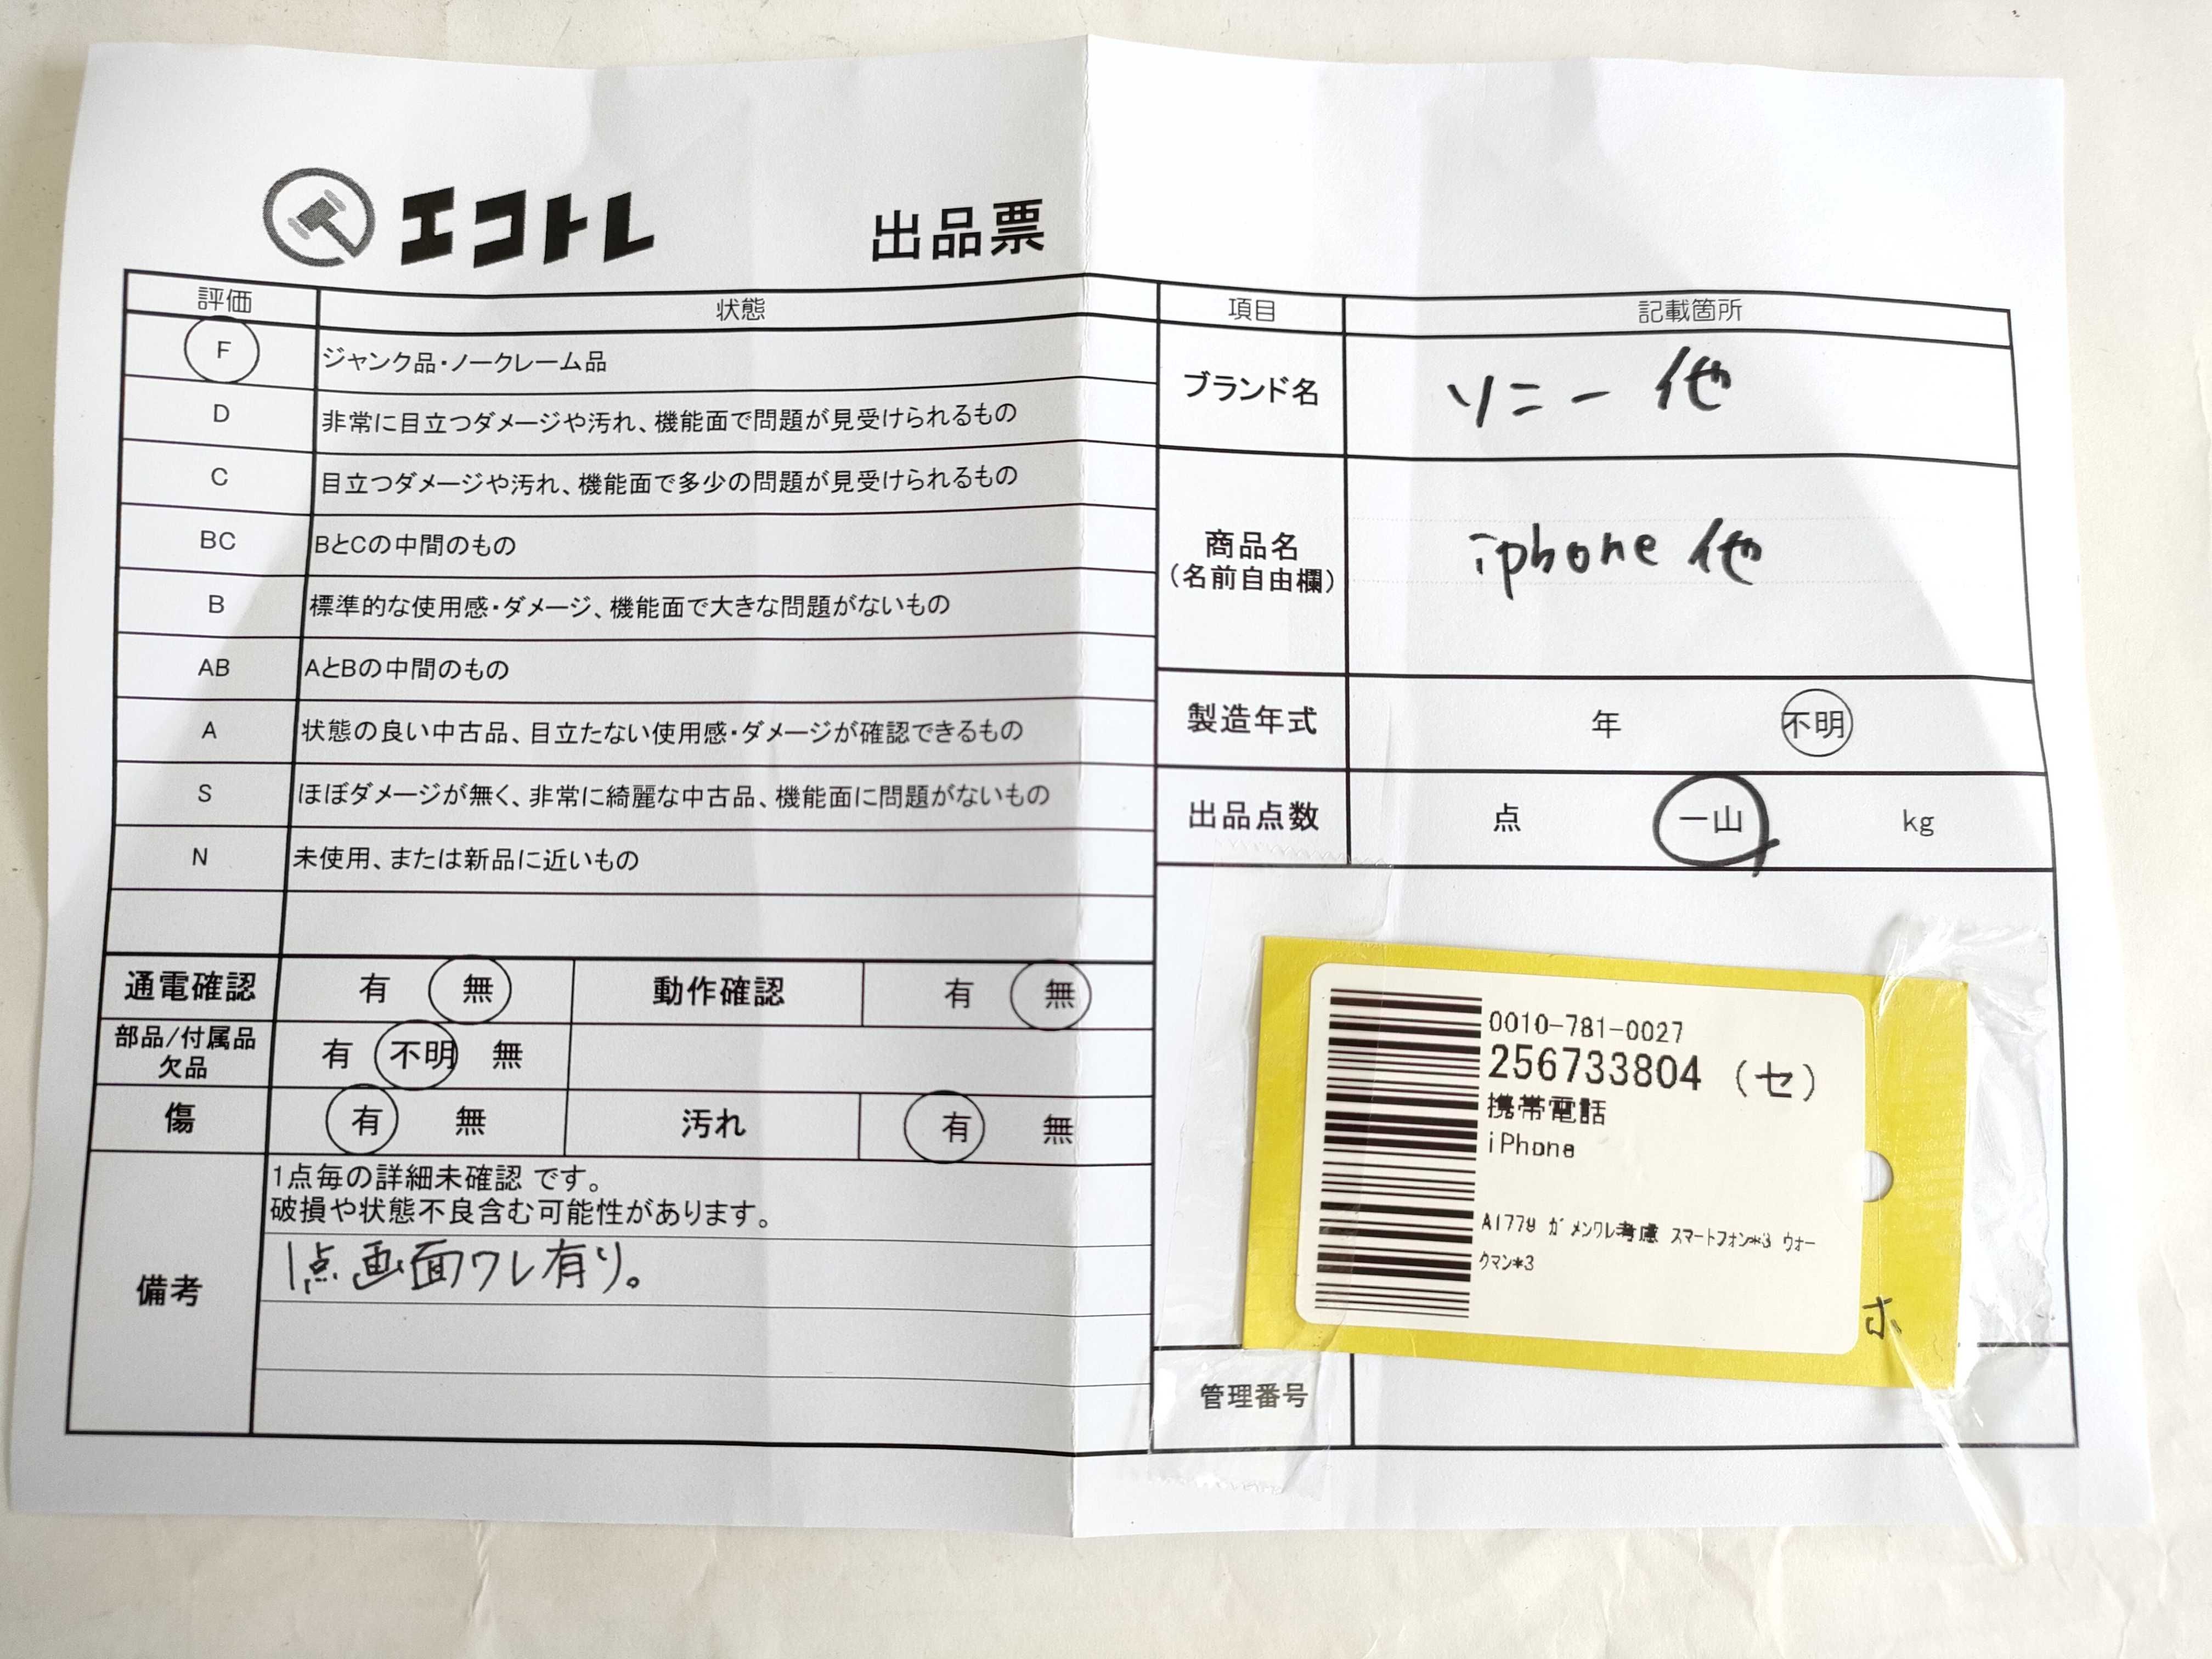 エコトレ 出品票
評価 状態
F ジャンク品・ノークレーム品
D 非常に目立つダメージや汚れ、機能面で問題が見受けられるもの
C 目立つダメージや汚れ、機能面で多少の問題が見受けられるもの
BC BとCの中間のもの
B 標準的な使用感・ダメージ、機能面で大きな問題がないもの
AB AとBの中間のもの
A 状態の良い中古品、目立たない使用感・ダメージが確認できるもの
S ほぼダメージが無く、非常に綺麗な中古品、機能面に問題がないもの
N 未使用、または新品に近いもの
通電確認 有 無 動作確認 有 無
部品/付属品
欠品 有 不明 無
傷 有 無 汚れ 有 無
備考
1点毎の詳細未確認 です。
破損や状態不良含む可能性があります。
1点画面ワレ有り。
項目 記載箇所
ブランド名 ソニー 他
商品名
(名前自由欄) iphone 他
製造年式 年 不明
出品点数 点 一山 kg
0010-781-0027
256733804 (セ)
携帯電話
iPhone
A1779 ガメンワレ考慮 スマートフォン*3 ウォー
クマン*3
ホ
管理番号